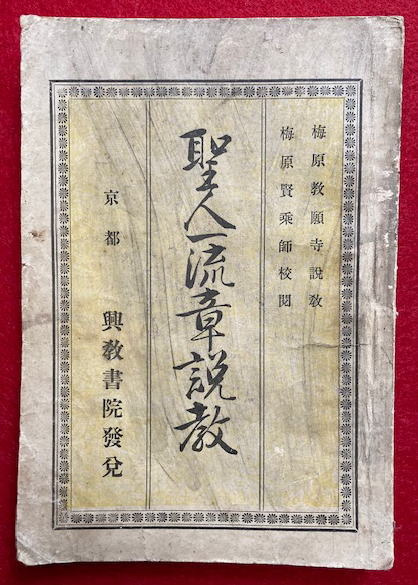 梅原教願寺說敎
梅原賢乘師校閱
聖人一流章説教
京都 興教書院發兌